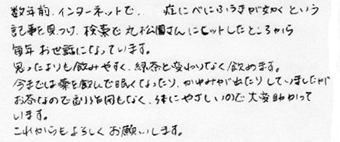 数年前、インターネットで、 症にべにふうきが効くという
記事を見つけ、検索で丸松園さんにヒットしたところから
毎年お世話になっています。
思ったよりも飲みやすく、緑茶と変わりなく飲めます。
今までは薬を飲んで眠くなったり、かゆみが出たりしていましたが
お茶なので副作用もなく、体にやさしいので大変助かって
います。
これからもよろしくお願いします。